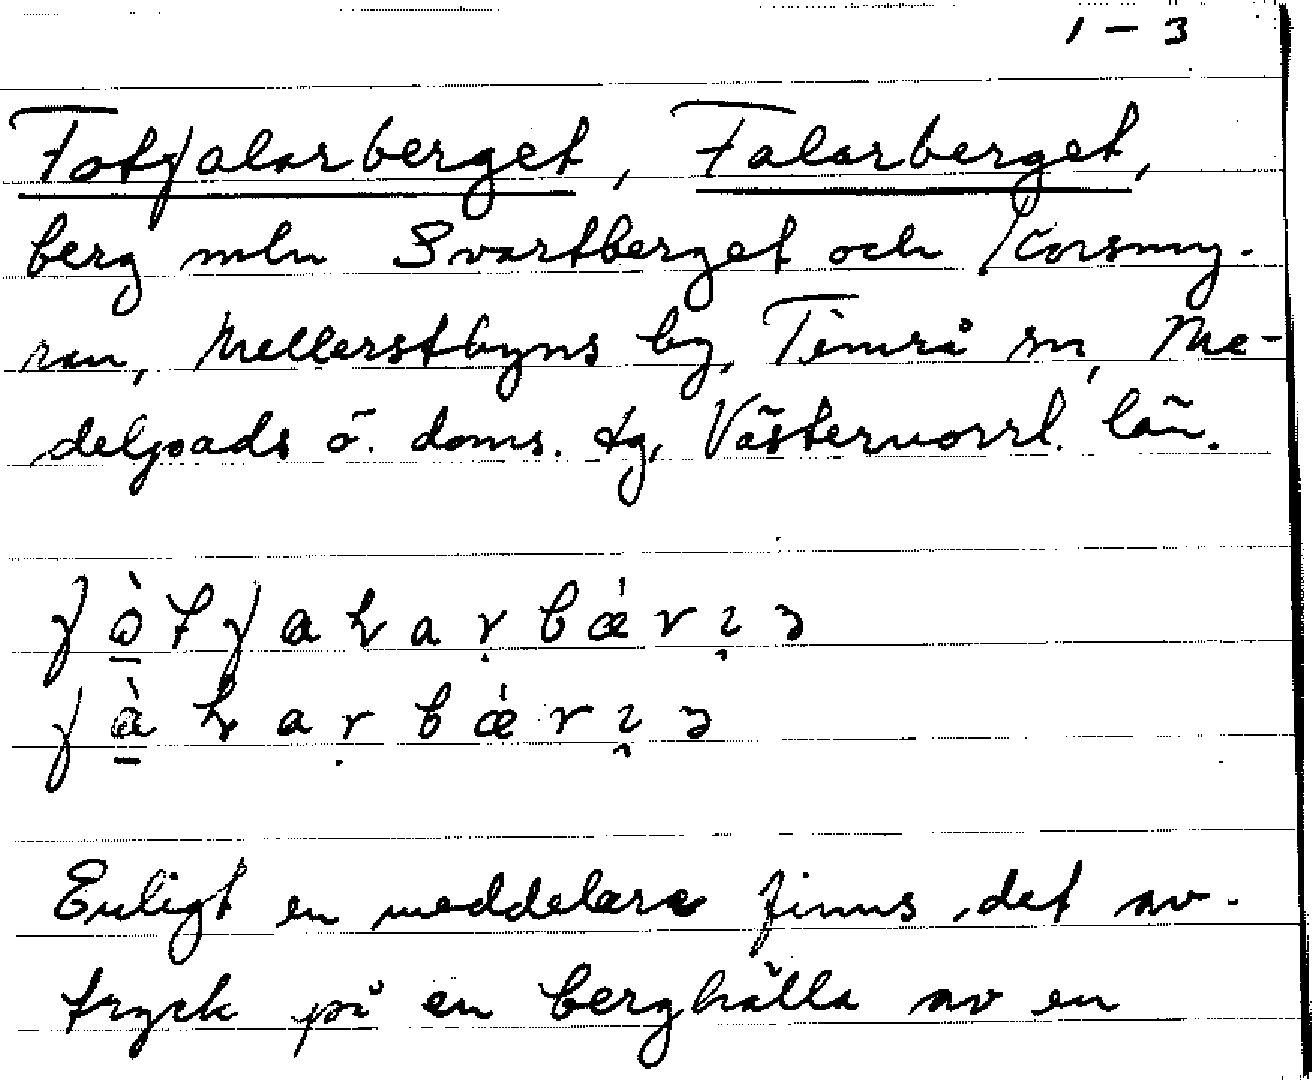 1 – 3
Fotfalarberget, Falarberget,
berg mln Svartberget och Korsmy-
ran, Mellerstbyns by, Timrå sn, Me-
delpads ö. doms. tg, Västernorrl. län.
Enligt en meddelare finns det av-
tryck på en berghälla av en